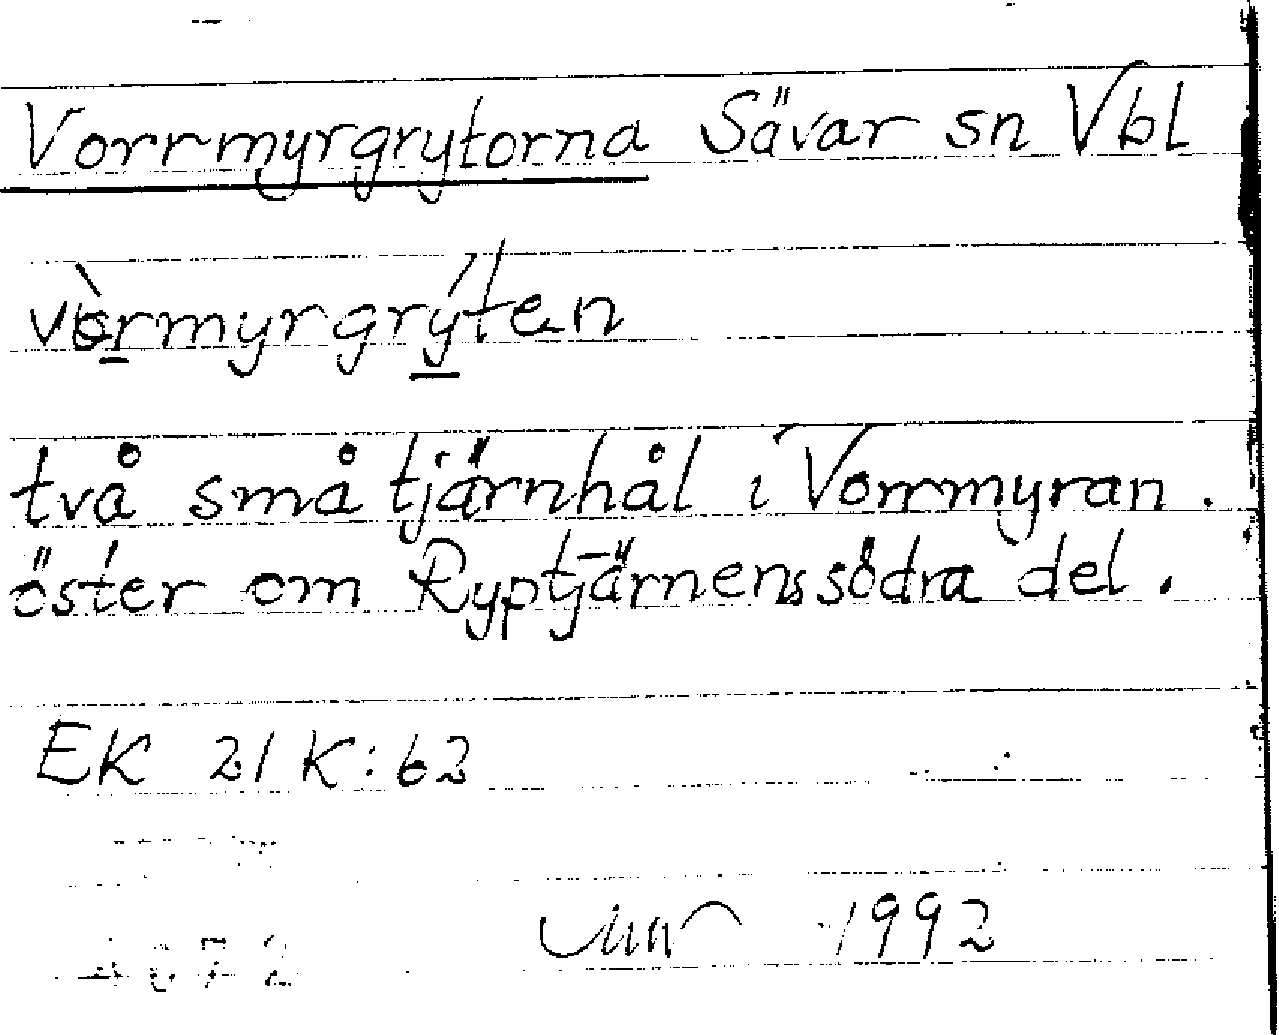 Vorrmyrgrytorna Sävar sn Vbl
vòrmyrgrýten
två små tjärnhål i Vorrmyran.
öster om Ryptjärnens södra del.
EK 21 K:62
1992